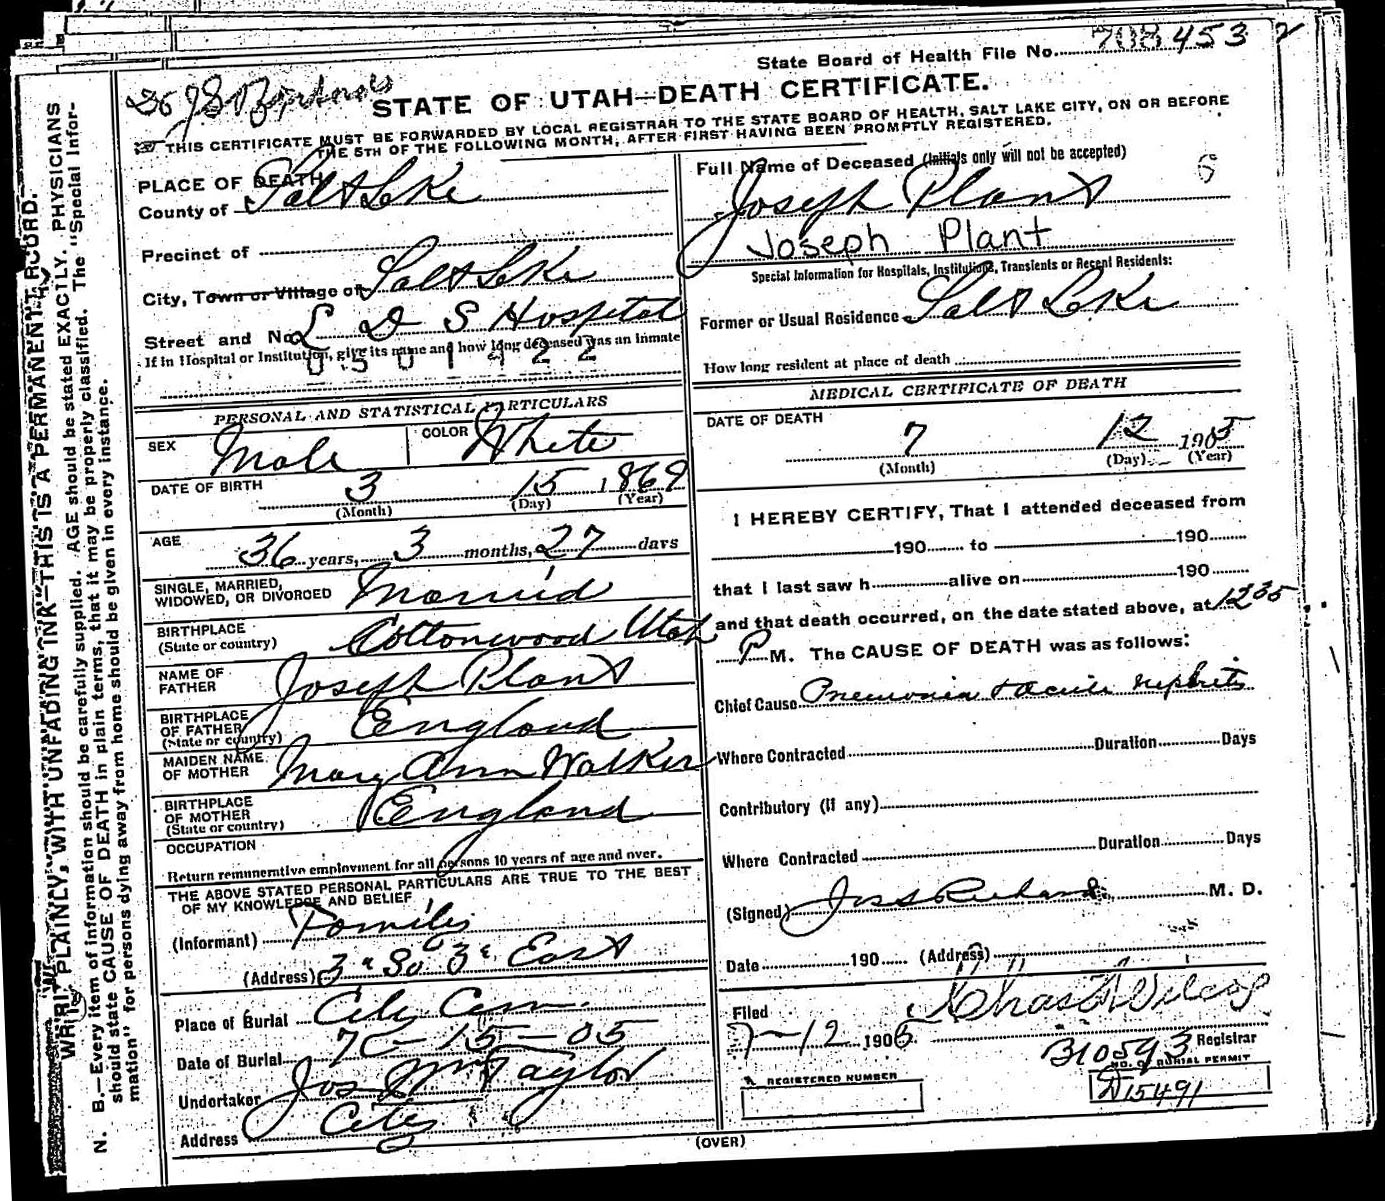 State Board of Health File No. 708 453 2
STATE OF UTAH—DEATH CERTIFICATE.
THIS CERTIFICATE MUST BE FORWARDED BY LOCAL REGISTRAR TO THE STATE BOARD OF HEALTH, SALT LAKE CITY, ON OR BEFORE
THE 5TH OF THE FOLLOWING MONTH, AFTER FIRST HAVING BEEN PROMPTLY REGISTERED.
WRITE PLAINLY, WITH UNFADING INK—THIS IS A PERMANENT RECORD.
N. B.—Every item of information should be carefully supplied. AGE should be stated EXACTLY. PHYSICIANS
should state CAUSE OF DEATH in plain terms, that it may be properly classified. The "Special Infor-
mation" for persons dying away from home should be given in every instance.
PLACE OF DEATH
County of Salt Lake
Precinct of
City, Town or Village of Salt Lake
Street and No. L D S Hospital
If in Hospital or Institution, give its name and how long deceased was an inmate
0501422
PERSONAL AND STATISTICAL PARTICULARS
SEX Male COLOR White
DATE OF BIRTH 3 15 1869
(Month) (Day) (Year)
AGE 36 years, 3 months, 27 days
SINGLE, MARRIED,
WIDOWED, OR DIVORCED Married
BIRTHPLACE
(State or country) Cottonwood Utah
NAME OF
FATHER Joseph Plant
BIRTHPLACE
OF FATHER
(State or country) England
MAIDEN NAME
OF MOTHER Mary Ann Walker
BIRTHPLACE
OF MOTHER
(State or country) England
OCCUPATION
Return remunerative employment for all persons 10 years of age and over.
THE ABOVE STATED PERSONAL PARTICULARS ARE TRUE TO THE BEST
OF MY KNOWLEDGE AND BELIEF
(Informant) Family
(Address) 3" So 3" East
Place of Burial City Cem.
Date of Burial 7 - 15 - 05
Undertaker Jos Wm Taylor
Address City
Full Name of Deceased (Initials only will not be accepted)
Joseph Plant
Joseph Plant
Special Information for Hospitals, Institutions, Transients or Recent Residents:
Former or Usual Residence Salt Lake
How long resident at place of death
MEDICAL CERTIFICATE OF DEATH
DATE OF DEATH
7 12 1905
(Month) (Day) (Year)
I HEREBY CERTIFY, That I attended deceased from
190 to 190
that I last saw h alive on 190
and that death occurred, on the date stated above, at 1235
P M. The CAUSE OF DEATH was as follows:
Chief Cause Pneumonia & Acute Nephritis
Where Contracted Duration Days
Contributory (if any)
Where Contracted Duration Days
(Signed) M. D.
Date 190 (Address)
Filed
7-12 1905
Registrar
B10593
NO. OF BURIAL PERMIT
D15491
REGISTERED NUMBER
(OVER)